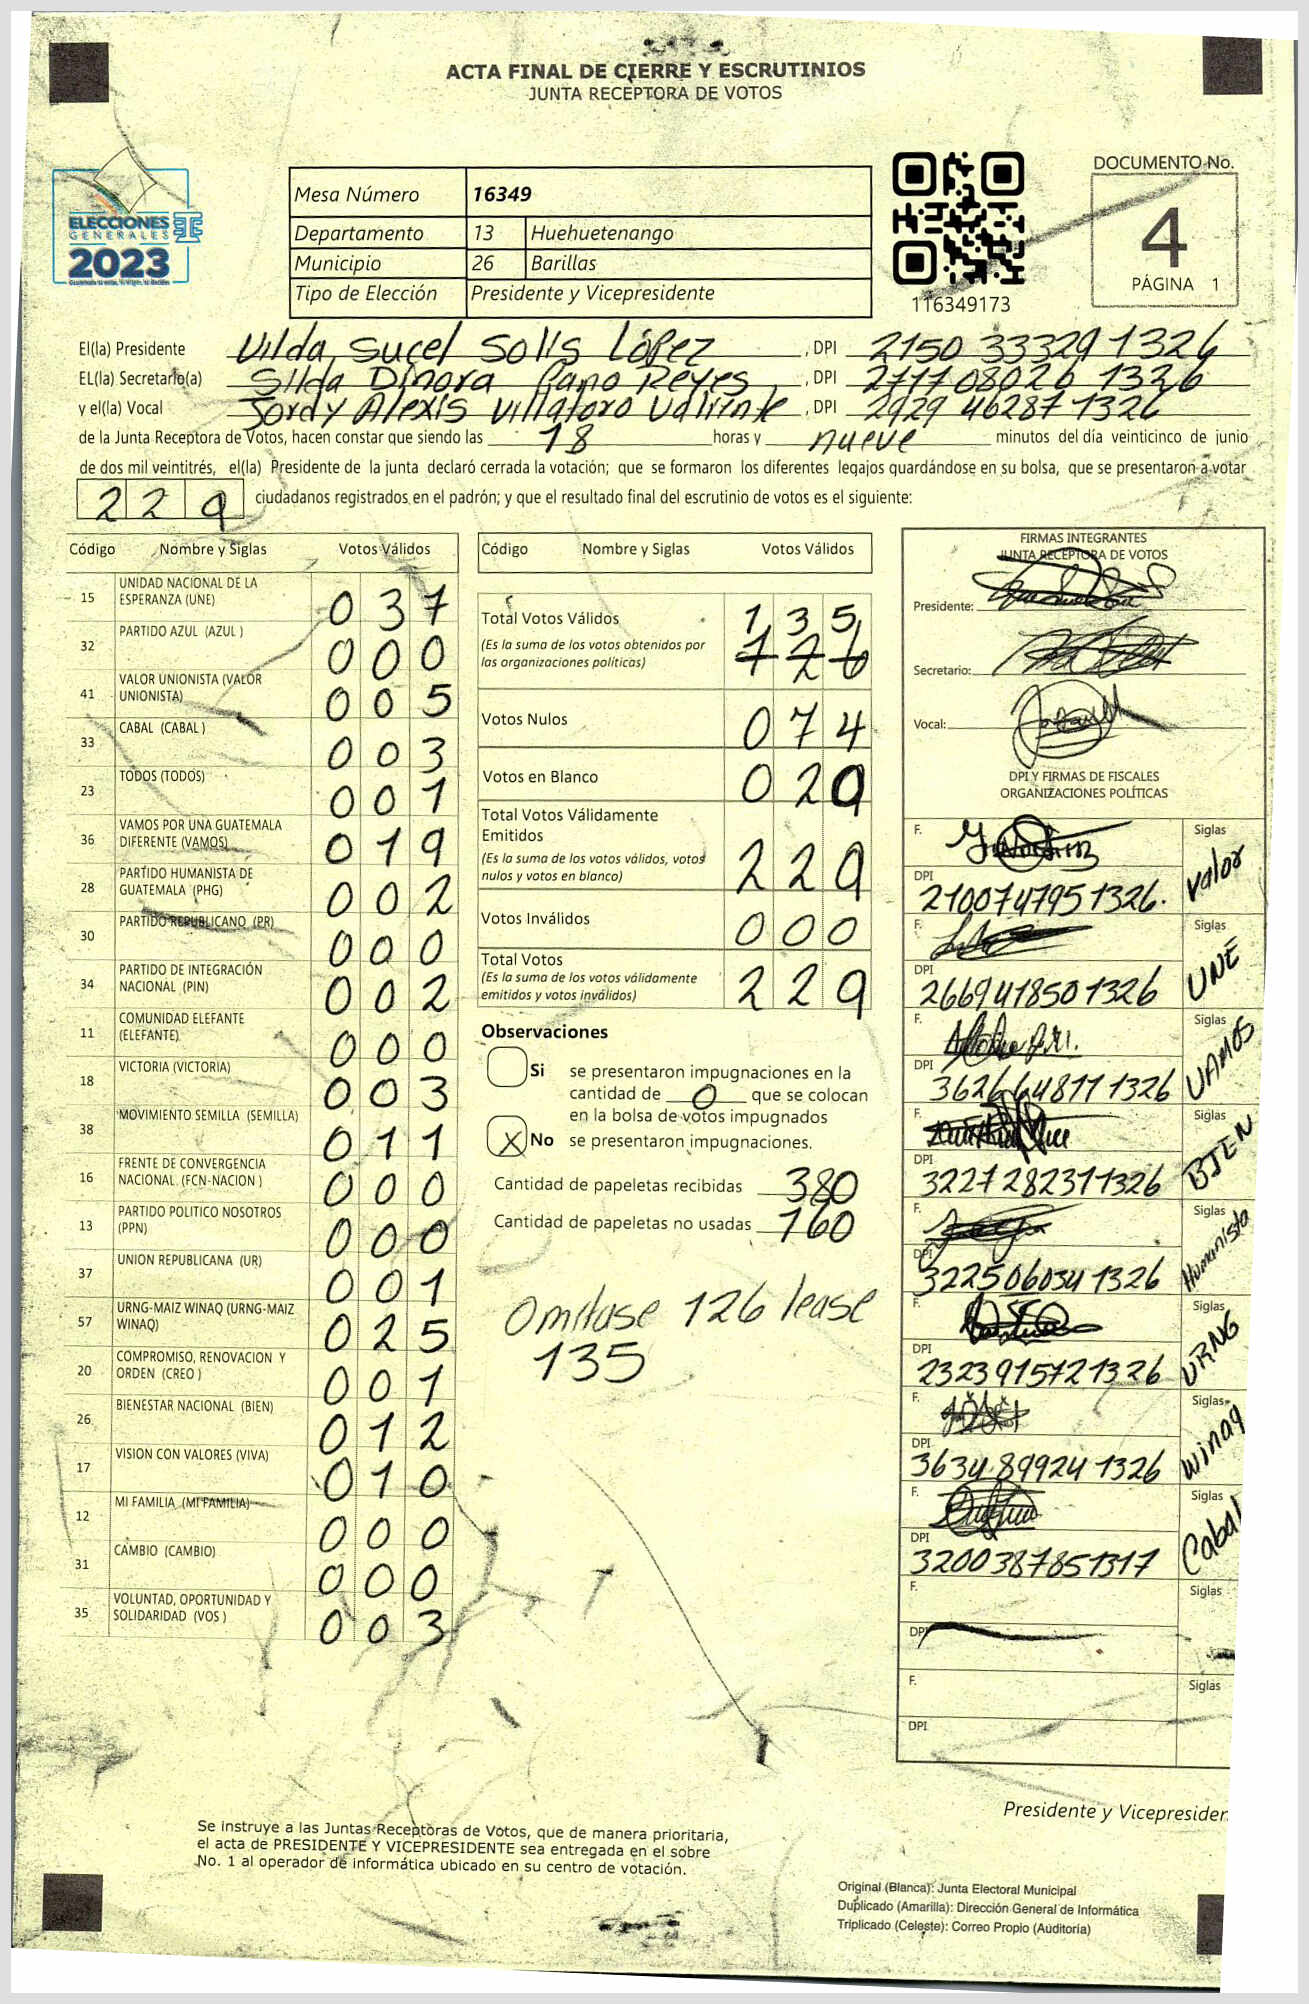 ACTA FINAL DE CIERRE Y ESCRUTINIOS
JUNTA RECEPTORA DE VOTOS
ELECCIONES
GENERALES
2023
Mesa Número 16349
Departamento 13 Huehuetenango
Municipio 26 Barillas
Tipo de Elección Presidente y Vicepresidente
116349173
DOCUMENTO No.
4
PÁGINA 1
El(la) Presidente Vilda Sucel Solis López , DPI 2150 33329 1326
EL(la) Secretario(a) Silda Dinora Cano Reyes , DPI 2717 08026 1326
y el(la) Vocal Jordy Alexis Villatoro Valiente , DPI 2929 46287 1326
de la Junta Receptora de Votos, hacen constar que siendo las 18 horas y nueve minutos del día veinticinco de junio
de dos mil veintitrés, el(la) Presidente de la junta declaró cerrada la votación; que se formaron los diferentes legajos guardándose en su bolsa, que se presentaron a votar
229 ciudadanos registrados en el padrón; y que el resultado final del escrutinio de votos es el siguiente:
Código Nombre y Siglas Votos Válidos
15 UNIDAD NACIONAL DE LA ESPERANZA (UNE) 037
32 PARTIDO AZUL (AZUL ) 000
41 VALOR UNIONISTA (VALOR UNIONISTA) 005
33 CABAL (CABAL ) 003
23 TODOS (TODOS) 001
36 VAMOS POR UNA GUATEMALA DIFERENTE (VAMOS) 019
28 PARTIDO HUMANISTA DE GUATEMALA (PHG) 002
30 PARTIDO REPUBLICANO (PR) 000
34 PARTIDO DE INTEGRACIÓN NACIONAL (PIN) 002
11 COMUNIDAD ELEFANTE (ELEFANTE) 000
18 VICTORIA (VICTORIA) 003
38 MOVIMIENTO SEMILLA (SEMILLA) 011
16 FRENTE DE CONVERGENCIA NACIONAL (FCN-NACION ) 000
13 PARTIDO POLITICO NOSOTROS (PPN) 000
37 UNION REPUBLICANA (UR) 001
57 URNG-MAIZ WINAQ (URNG-MAIZ WINAQ) 025
20 COMPROMISO, RENOVACION Y ORDEN (CREO ) 001
26 BIENESTAR NACIONAL (BIEN) 012
17 VISION CON VALORES (VIVA) 010
12 MI FAMILIA (MI FAMILIA) 000
31 CAMBIO (CAMBIO) 000
35 VOLUNTAD, OPORTUNIDAD Y SOLIDARIDAD (VOS ) 003
Código Nombre y Siglas Votos Válidos
Total Votos Válidos 135
(Es la suma de los votos obtenidos por las organizaciones políticas) 126
Votos Nulos 074
Votos en Blanco 020
Total Votos Válidamente Emitidos
(Es la suma de los votos válidos, votos nulos y votos en blanco) 229
Votos Inválidos 000
Total Votos
(Es la suma de los votos válidamente emitidos y votos inválidos) 229
Observaciones
Si se presentaron impugnaciones en la
cantidad de 0 que se colocan
en la bolsa de votos impugnados
X No se presentaron impugnaciones.
Cantidad de papeletas recibidas 380
Cantidad de papeletas no usadas 160
Omitase 126 lease
135
FIRMAS INTEGRANTES
JUNTA RECEPTORA DE VOTOS
Presidente:
Secretario:
Vocal:
DPI Y FIRMAS DE FISCALES
ORGANIZACIONES POLÍTICAS
F. Siglas valor
DPI 2100747951326.
F. Siglas UNE
DPI 2669418501326
F. Siglas VAMOS
DPI 3626648111326
F. Siglas BIEN
DPI 3227282371326
F. Siglas Humanista
DPI 3225060341326
F. Siglas URNG
DPI 2323915721326
F. Siglas winaq
DPI 3634899241326
F. Siglas Cabal
DPI 3200387851317
F. Siglas
DPI
F. Siglas
DPI
Presidente y Vicepresiden
Se instruye a las Juntas Receptoras de Votos, que de manera prioritaria,
el acta de PRESIDENTE Y VICEPRESIDENTE sea entregada en el sobre
No. 1 al operador de informática ubicado en su centro de votación.
Original (Blanca): Junta Electoral Municipal
Duplicado (Amarilla): Dirección General de Informática
Triplicado (Celeste): Correo Propio (Auditoria)